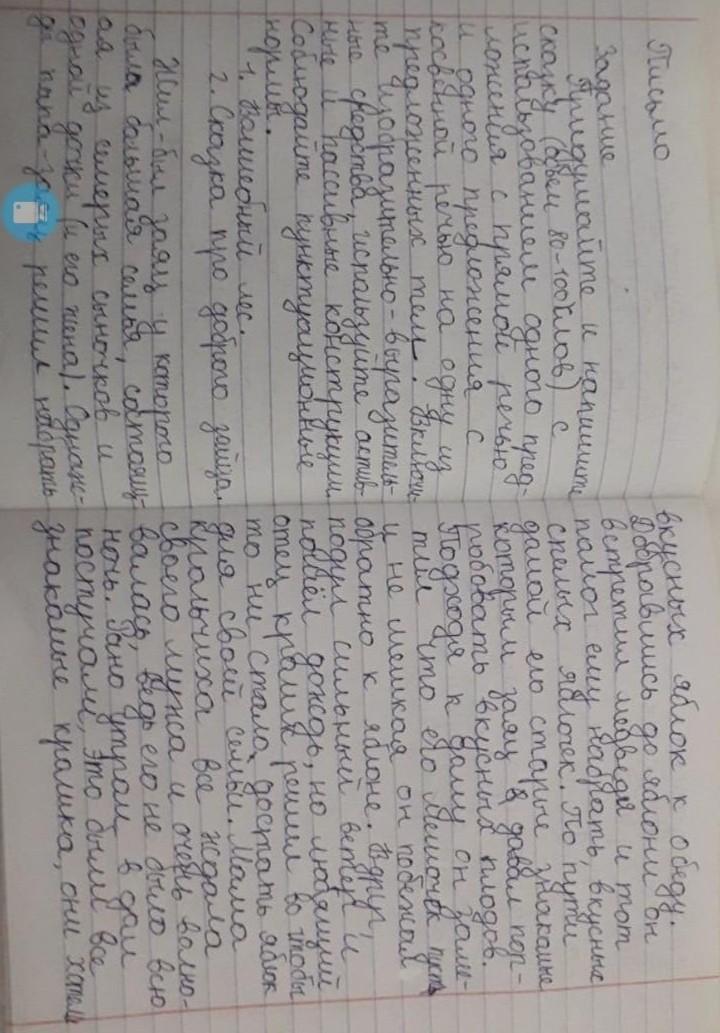 Письмо
Задание
Придумайте и напишите
сказку (объем 80-100 слов) с
использованием одного пред-
ложения с прямой речью
и одного предложения с
косвенной речью на одну из
предложенных тем. Включи-
те изобразительно-выразитель-
ные средства, используйте актив-
ные и пассивные конструкции
Соблюдайте пунктуационные
нормы.
1. Волшебный лес.
2. Сказка про доброго зайца.
Жил-был заяц у которого
была большая семья, состоящ-
ая из семерых сыночков и
одной дочки (и его жена). Однаж-
ды папа- решил набрать
вкусных яблок к обеду.
Добравшись до яблони он
встретил медведя и тот
помог ему набрать, вкусные
спелых яблочек. По пути
домой его старые знакомые
которым заяц давал поп-
робовать вкусных плодов.
Подходя к дому он заме-
тил что его мешочек пуст
и не мешкая он побежал
обратно к яблоне. Вдруг,
подул сильный ветер и
пошёл дождь, но любящий
отец кролик решил во чтобы
то ни стало, достать яблок
для своей семьи. Мама
крольчиха все ждала
своего мужа и очень волно-
валась, ведь его не было всю
ночь. Рано утром в дом
постучали, это были все
знакомые кролика, они хотели